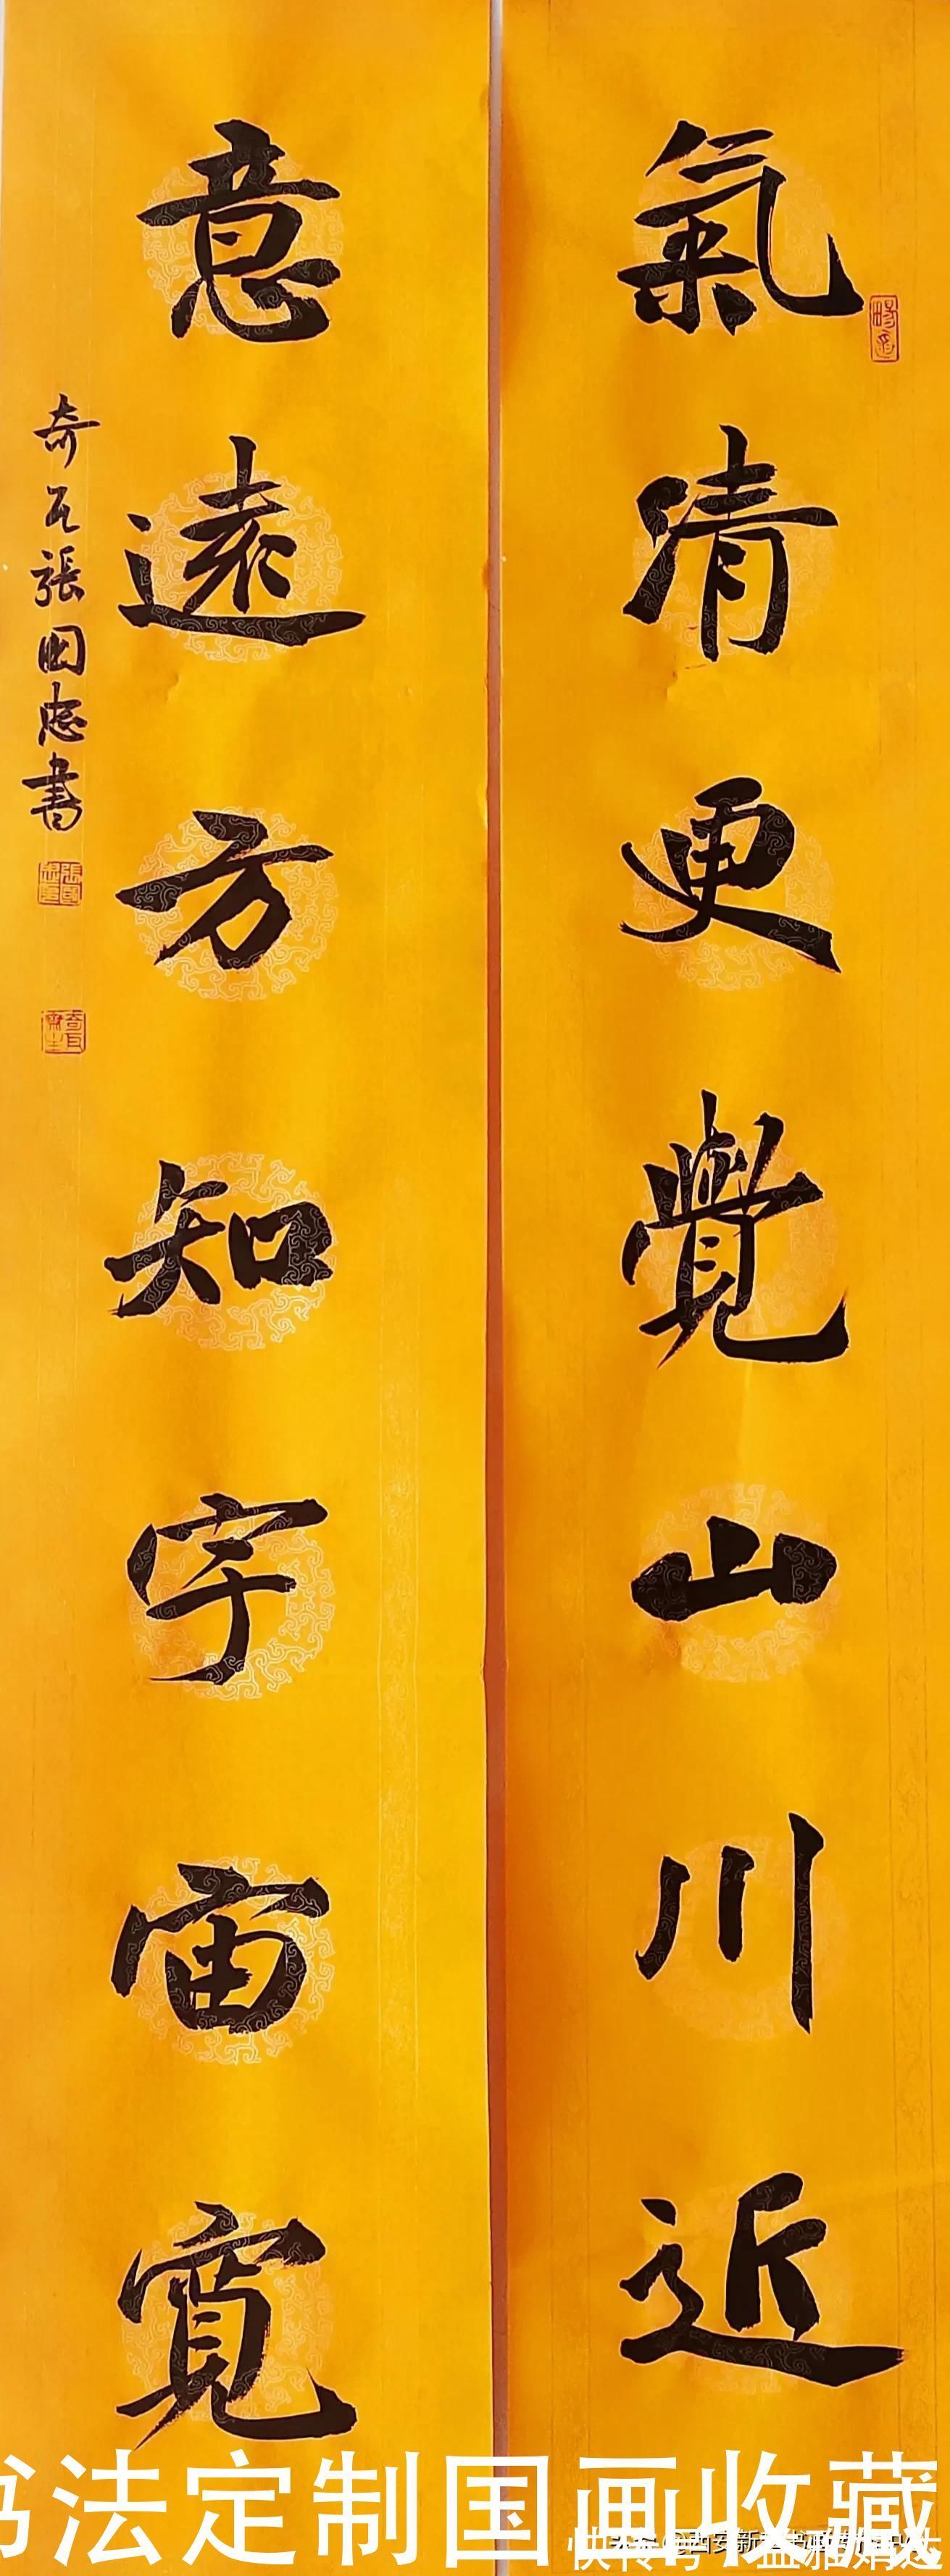 氣清更覺山川近
意遠方知宇宙寬
奇瓦張國忠書
书法定制国画收藏